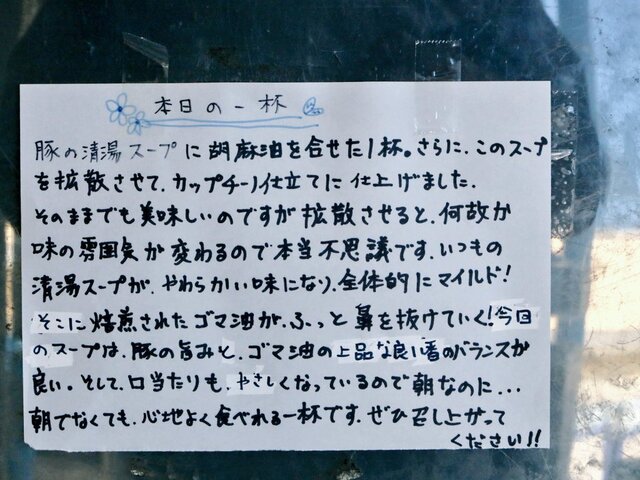 本日の一杯
豚の清湯スープに胡麻油を合せた1杯。さらに、このスープ
を拡散させて、カップチーノ仕立てに仕上げました。
そのままでも美味しいのですが拡散させると、何故か
味の雰囲気が変わるので本当不思議です。いつもの
清湯スープが、やわらかい味になり、全体的にマイルド!
そこに焙煎されたゴマ油が、ふっと鼻を抜けていく!今回
のスープは、豚の旨みと、ゴマ油の上品な良い香のバランスが
良い。そして、口当たりも、やさしくなっているので朝なのに...
朝でなくても、心地よく食べれる一杯です。ぜひ召し上がって
ください!!